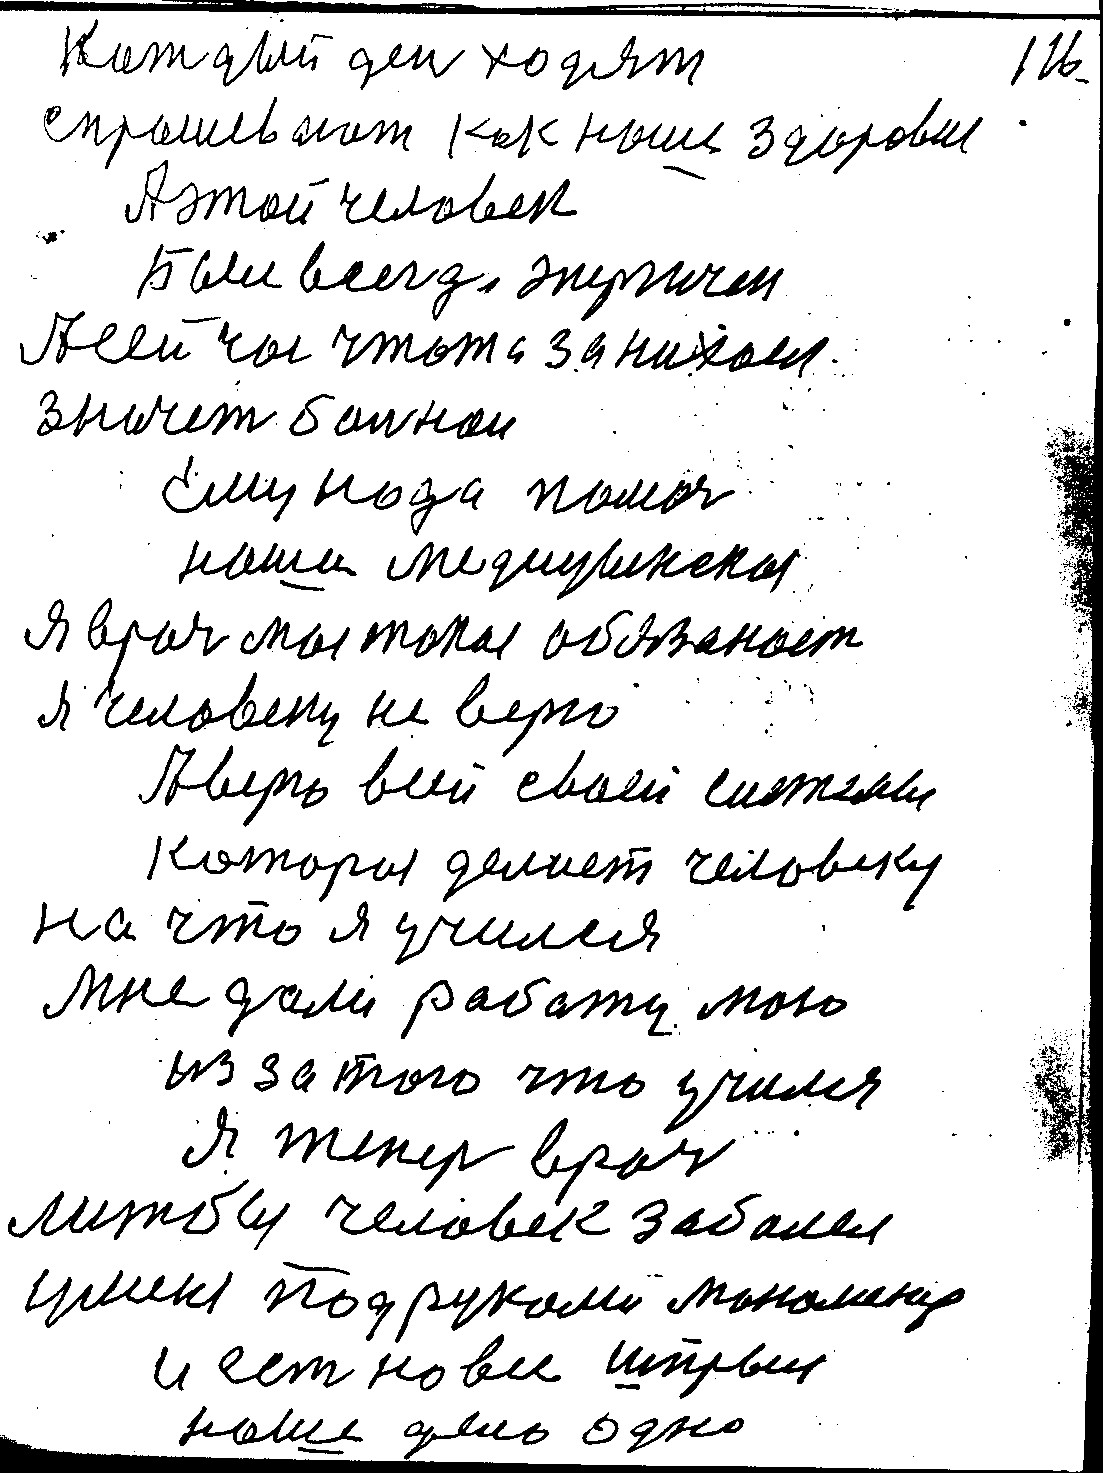 Каждый ден ходят 126.
спрашевают как наше здоровие
А этой человек
Были всегда энергичен
А сейчас чтота занихаел
значет болной
Ему нада помоч
наши медицинская
я врач моя такая обязаност
я человеку не верю
Я верю всей своей системы
Которая делает человеку
на что я учился
Мне дали работу мою
из за того что учился
Я тепер врач
литобы человек заболел
у меня под рукоми
и ест на все
наше дело одно